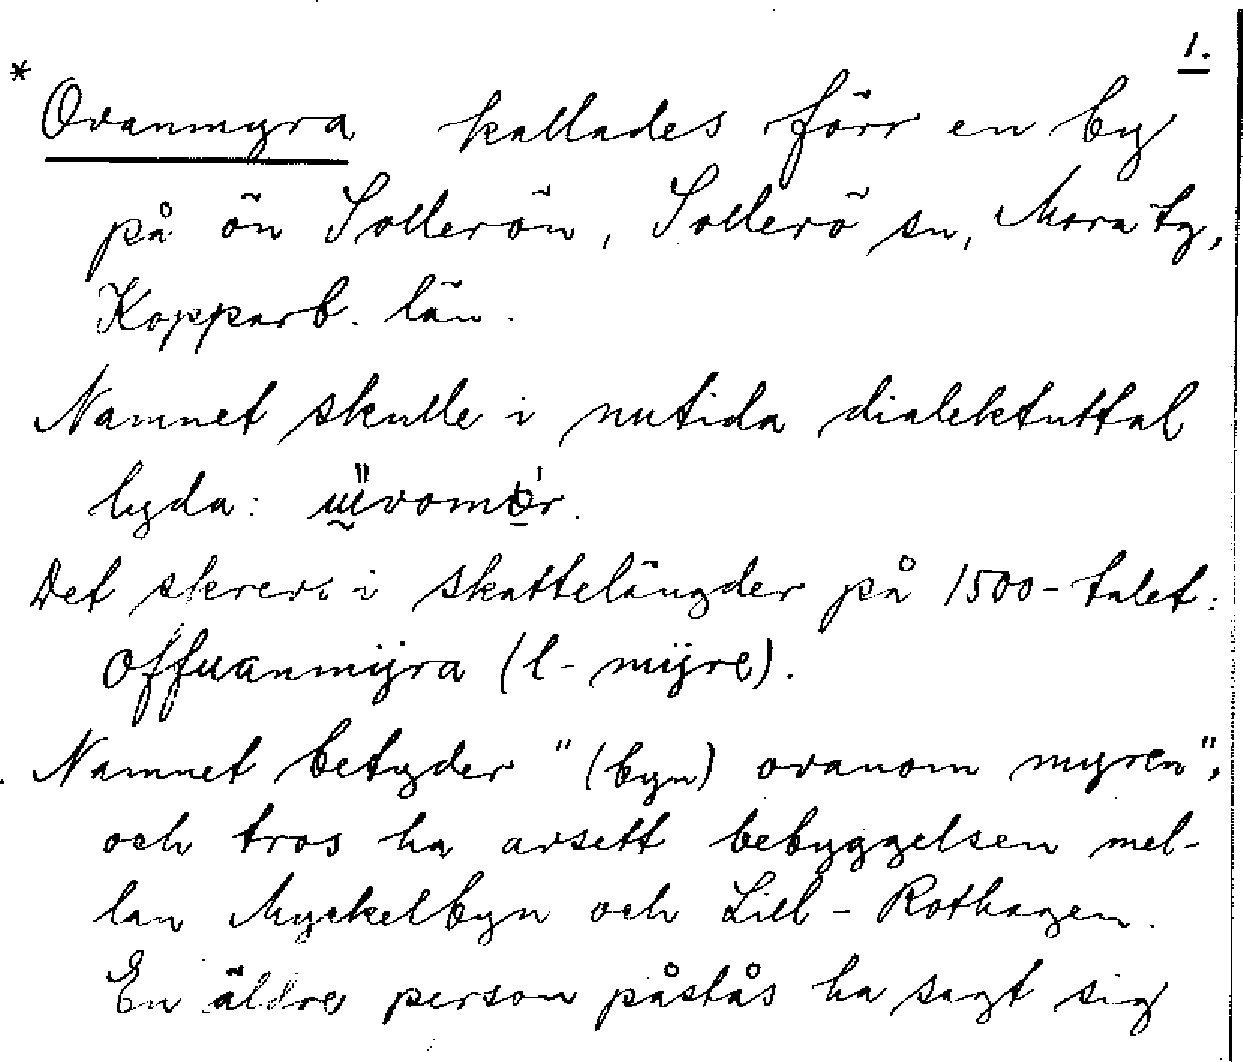 1.
* Ovanmyra kallades förr en by
på ön Sollerön, Sollerö sn, Mora tg,
Kopparb. län.
Namnet skulle i nutida dialektuttal
lyda:
Det skrevs i skattelängder på 1500-talet:
Offuanmijra (l- mijre).
Namnet betyder "(byn) ovanom myren",
och tros ha avsett bebyggelsen mel-
lan Myckelbyn och Lill-Rothagen.
En äldre person påstås ha sagt sig